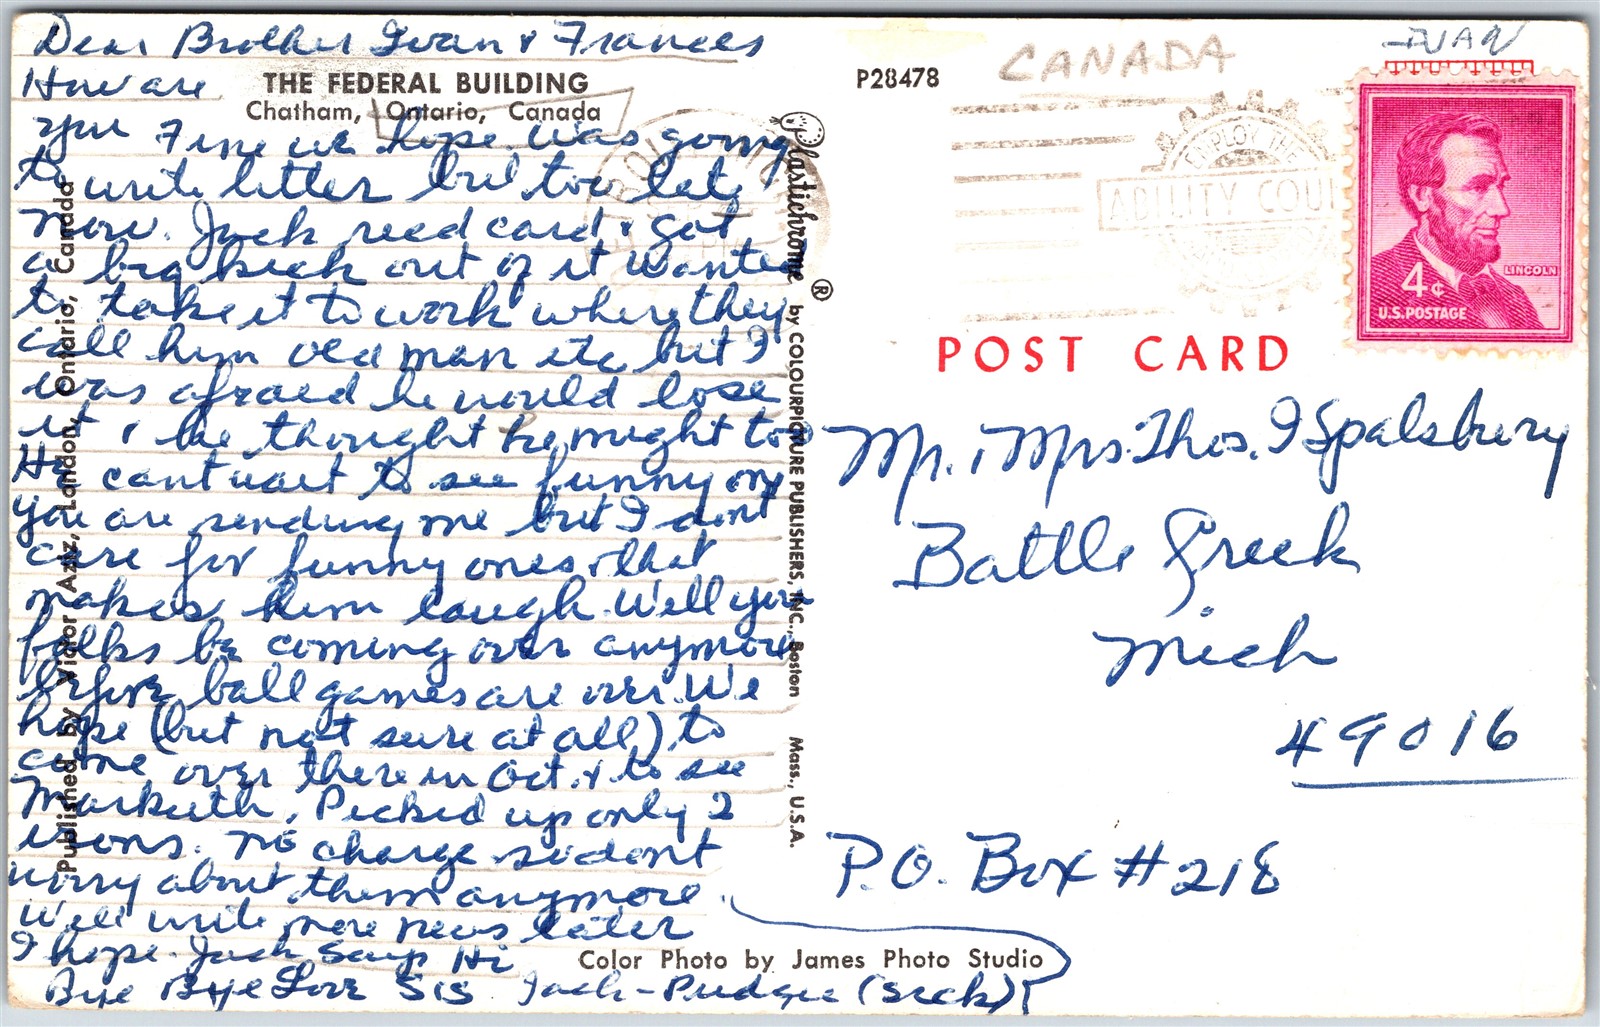 Dear Brother Ivan & Frances
How are
THE FEDERAL BUILDING
Chatham, Ontario, Canada
you Fine we hope. Was going
to write letter but too late
now. Jack recd card & got
a big kick out of it wanted
to take it to work where they
call him old man etc but I
was afraid he would lose
it & he thought he might to
He cant wait to see funny one
you are sending me but I dont
care for funny ones & that
makes him laugh. Well you
folks be coming over anymore
before ball games are over. We
hope (but not sure at all) to
come over there in Oct. & to see
Picked up only 2
irons. no charge so dont
worry about them anymore.
Will write more news later
I hope. Jack Says Hi
Bye Bye Love Sis Jack-Pudgie (sick)
Published by Victor Aziz, London, Ontario, Canada
Plastichrome ® by COLOURPICTURE PUBLISHERS, INC., Boston Mass., U.S.A.
Color Photo by James Photo Studio
P28478
CANADA
IVAN
EMPLOY THE
ABILITY COU
LINCOLN
4¢
U.S. POSTAGE
POST CARD
Mr. & Mrs. Thos. I Spalsbury
Battle Creek
Mich
49016
P.O. Box #218